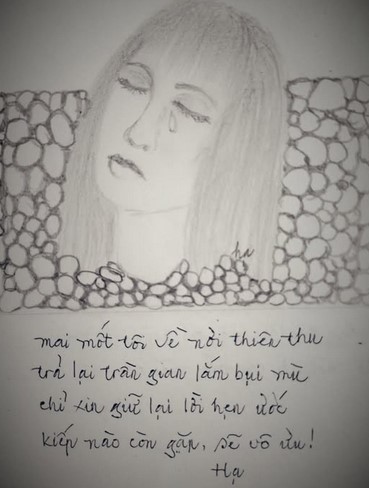 ha
mai mốt tôi về nơi thiên thu
trả lại trần gian lắm bụi mù
chỉ xin giữ lại lời hẹn ước
kiếp nào còn gặp, sẽ vô ưu!
Hạ